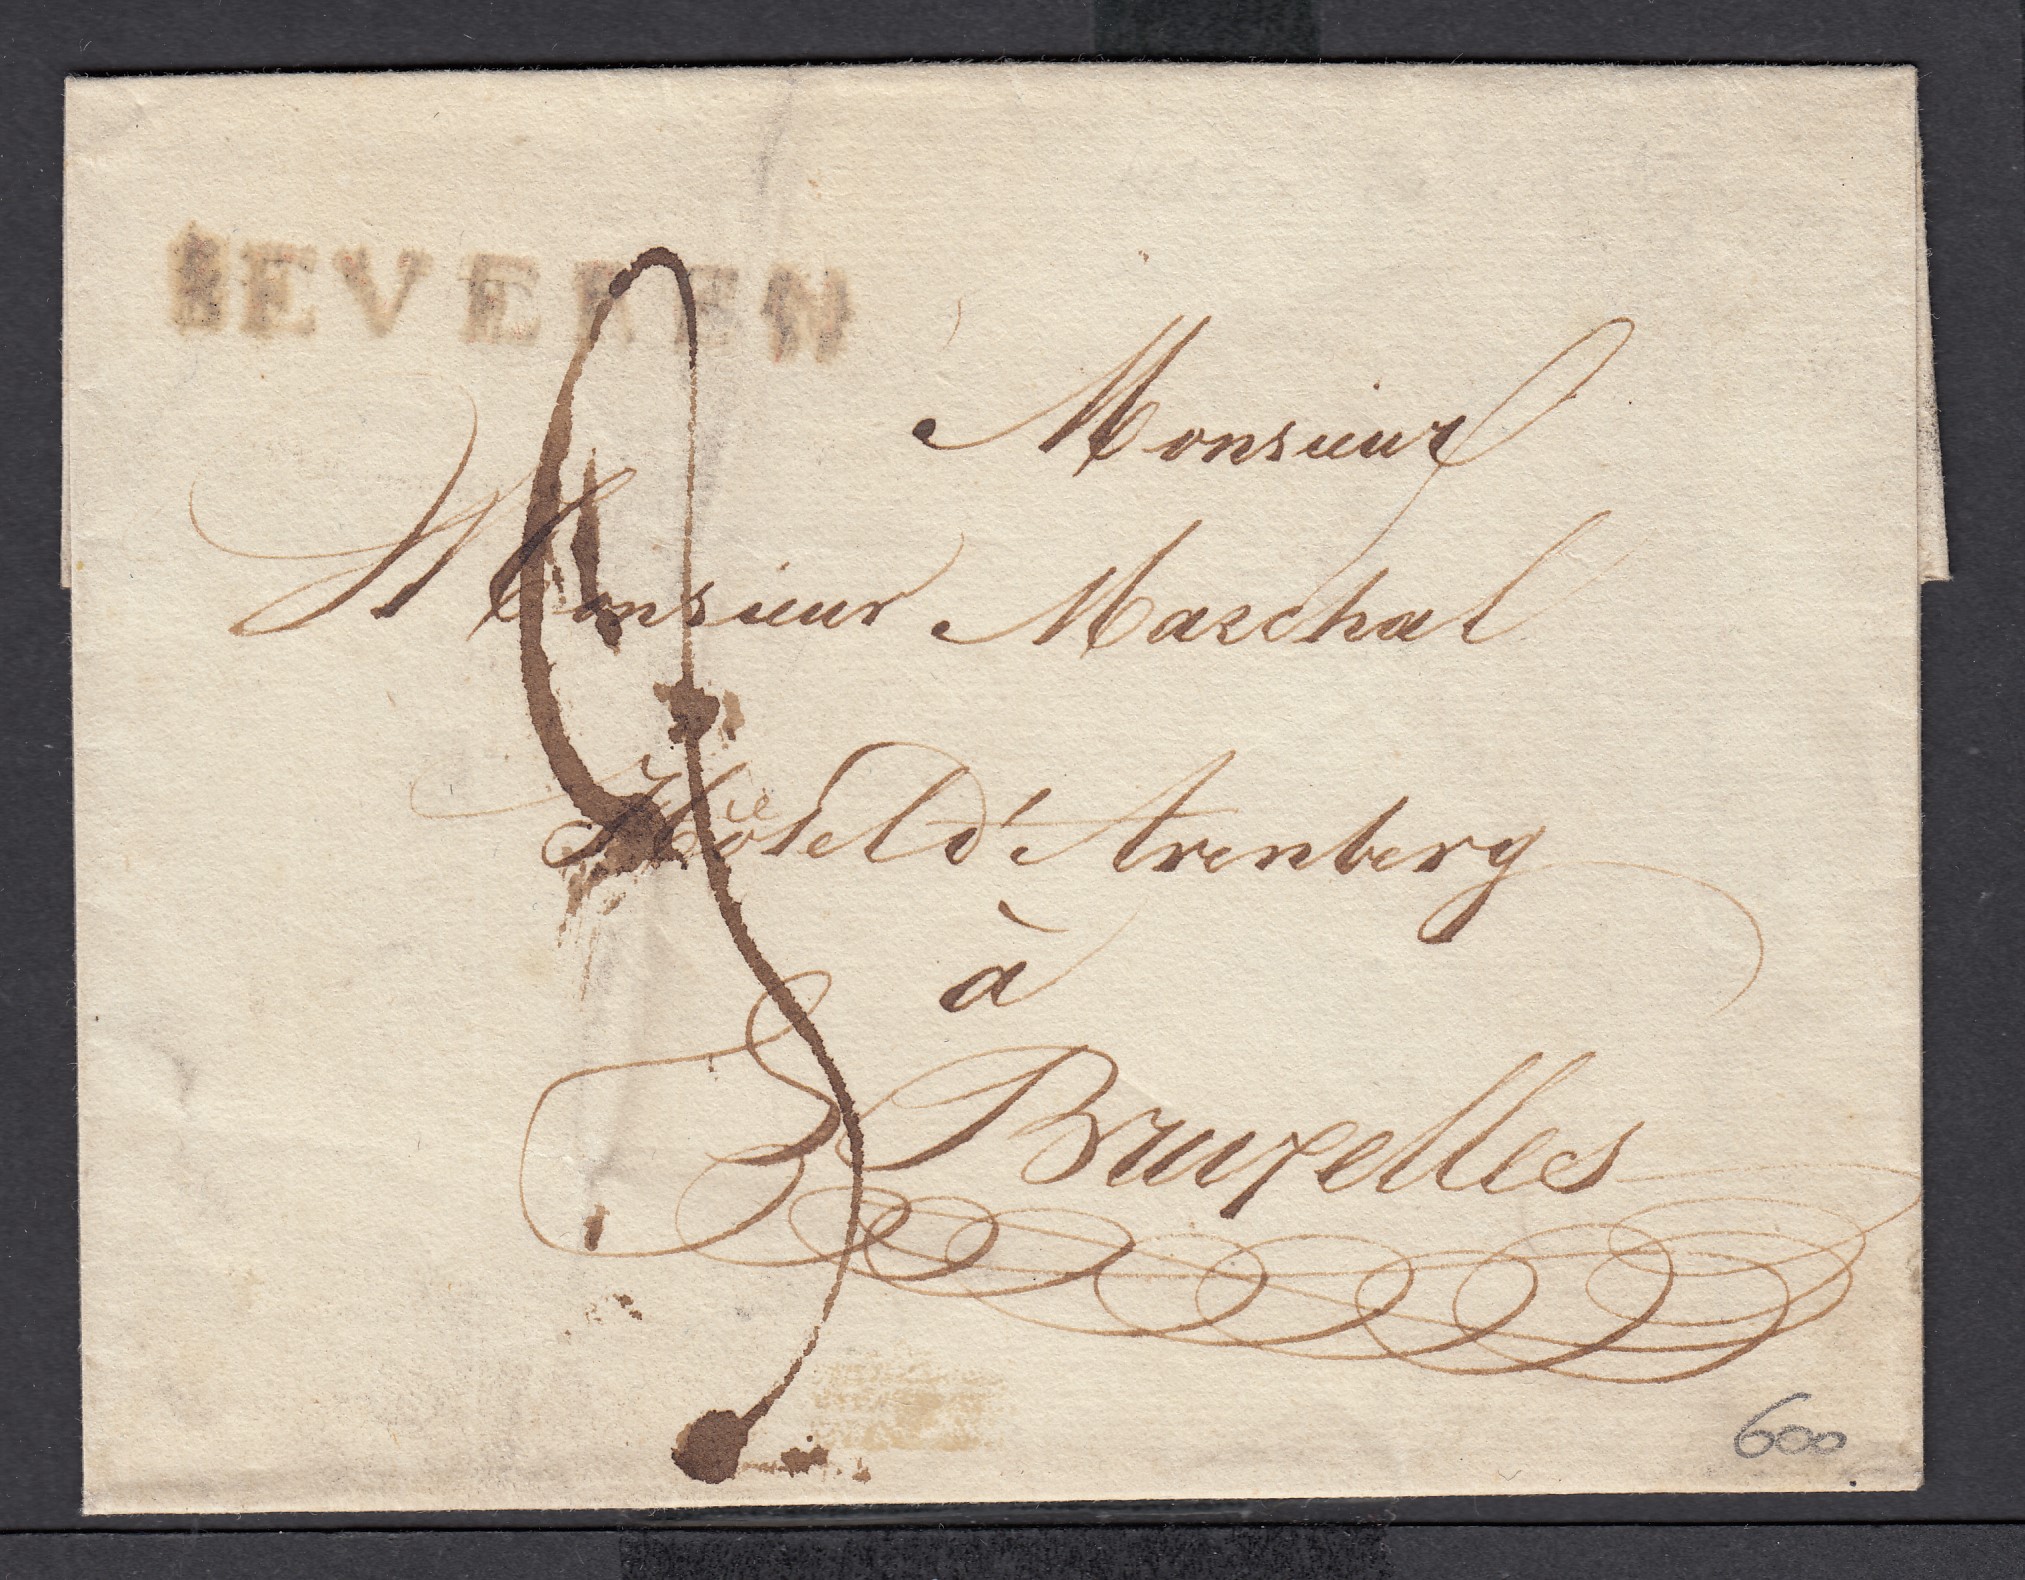 BEVEREN
Monsieur
Monsieur Marchal
Hôtel d'Arenberg
à
Bruxelles
600